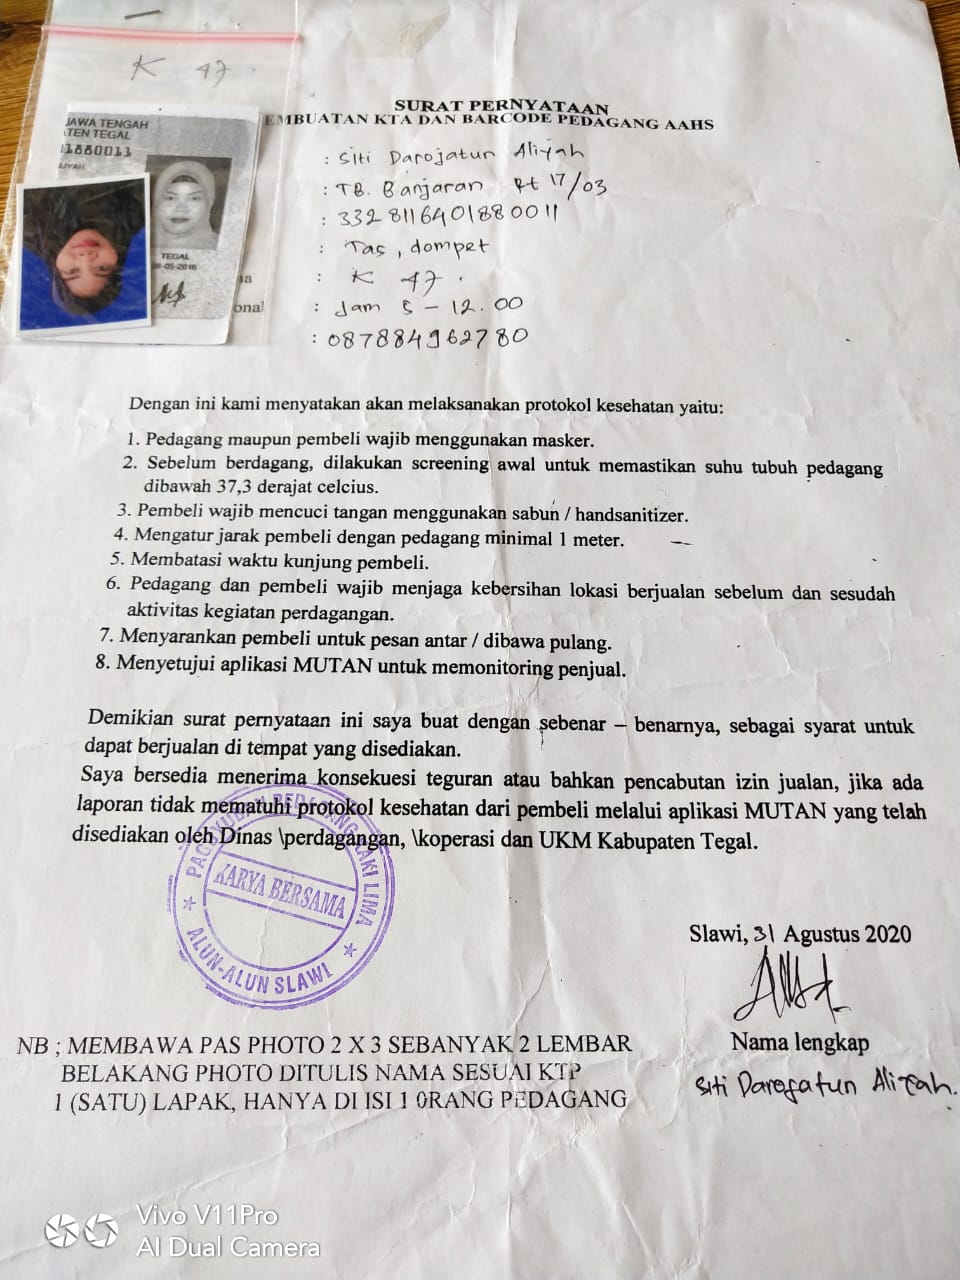 K 47.
JAWA TENGAH
TEN TEGAL
1880011
LIYAH
TEGAL
-05-2016
na
onal
SURAT PERNYATAAN
EMBUATAN KTA DAN BARCODE PEDAGANG AAHS
: Siti Darojatun Aliyah
: TB. Banjaran Rt 17/03
: 3328116401880011
: Tas, dompet
: K 47.
: Jam 5 - 12.00
: 087884962780
Dengan ini kami menyatakan akan melaksanakan protokol kesehatan yaitu:
1. Pedagang maupun pembeli wajib menggunakan masker.
2. Sebelum berdagang, dilakukan screening awal untuk memastikan suhu tubuh pedagang
dibawah 37,3 derajat celcius.
3. Pembeli wajib mencuci tangan menggunakan sabun / handsanitizer.
4. Mengatur jarak pembeli dengan pedagang minimal 1 meter.
5. Membatasi waktu kunjung pembeli.
6. Pedagang dan pembeli wajib menjaga kebersihan lokasi berjualan sebelum dan sesudah
aktivitas kegiatan perdagangan.
7. Menyarankan pembeli untuk pesan antar / dibawa pulang.
8. Menyetujui aplikasi MUTAN untuk memonitoring penjual.
Demikian surat pernyataan ini saya buat dengan sebenar – benarnya, sebagai syarat untuk
dapat berjualan di tempat yang disediakan.
Saya bersedia menerima konsekuesi teguran atau bahkan pencabutan izin jualan, jika ada
laporan tidak mematuhi protokol kesehatan dari pembeli melalui aplikasi MUTAN yang telah
disediakan oleh Dinas \perdagangan, \koperasi dan UKM Kabupaten Tegal.
PAGUYUBAN PEDAGANG KAKI LIMA
KARYA BERSAMA
ALUN-ALUN SLAWI
Slawi, 31 Agustus 2020
Nama lengkap
Siti Darojatun Aliyah.
NB ; MEMBAWA PAS PHOTO 2 X 3 SEBANYAK 2 LEMBAR
BELAKANG PHOTO DITULIS NAMA SESUAI KTP
1 (SATU) LAPAK, HANYA DI ISI 1 0RANG PEDAGANG
Vivo V11Pro
AI Dual Camera